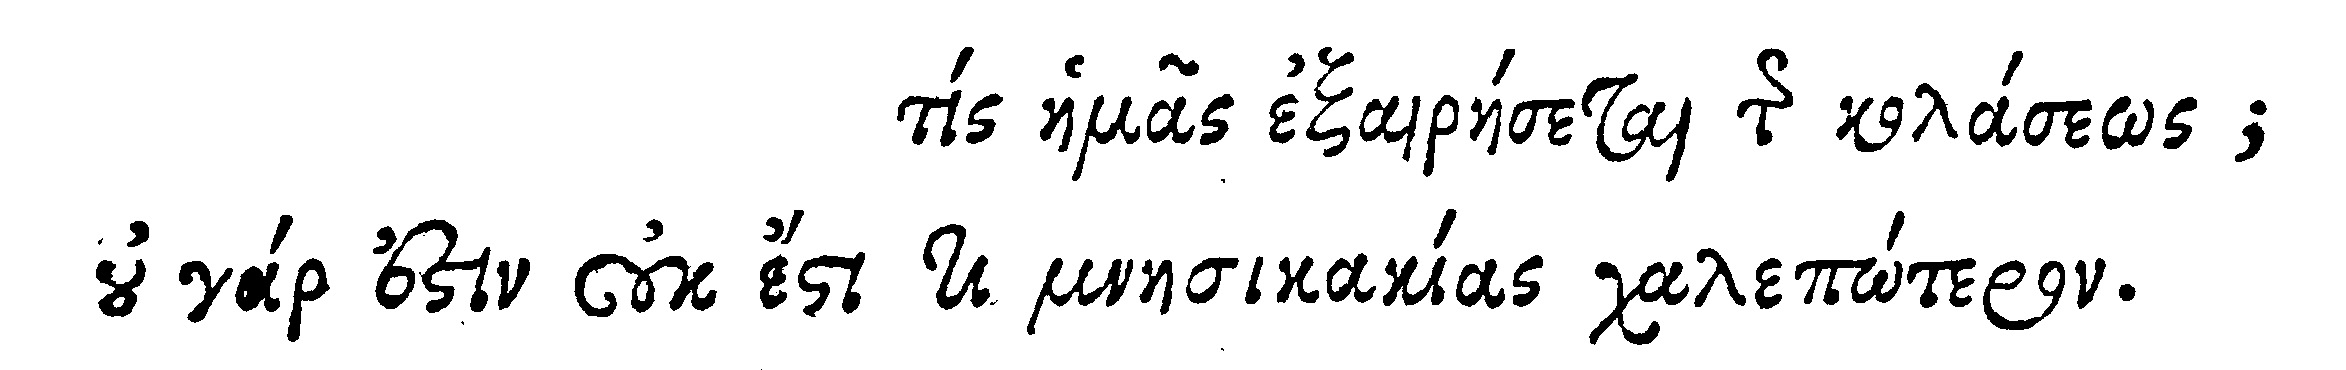 τίς ἡμᾶς ἐξαιρήσεται τῆς κολάσεως ;
οὐ γάρ ἐστιν οὐκ ἔστι τι μνησικακίας χαλεπώτερον.